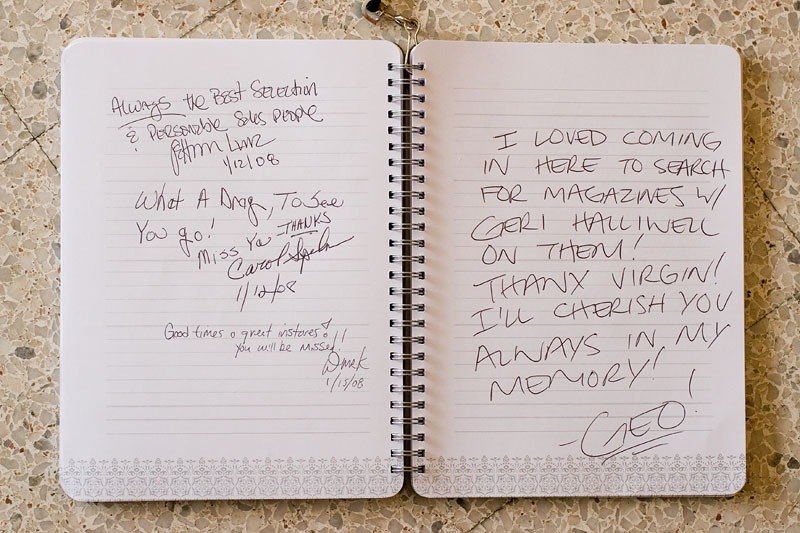 Always the Best Selection
& Personable Sales People
1/12/08
What A Drag, To See
You go!
Miss Ya THANKS
Carol
1/12/08
Good times & great instores!
You will be missed!!
1/15/08
I LOVED COMING
IN HERE TO SEARCH
FOR MAGAZINES W/
GERI HALLIWELL
ON THEM!
THANX VIRGIN!
I'LL CHERISH YOU
ALWAYS IN MY
MEMORY!
-GEO!